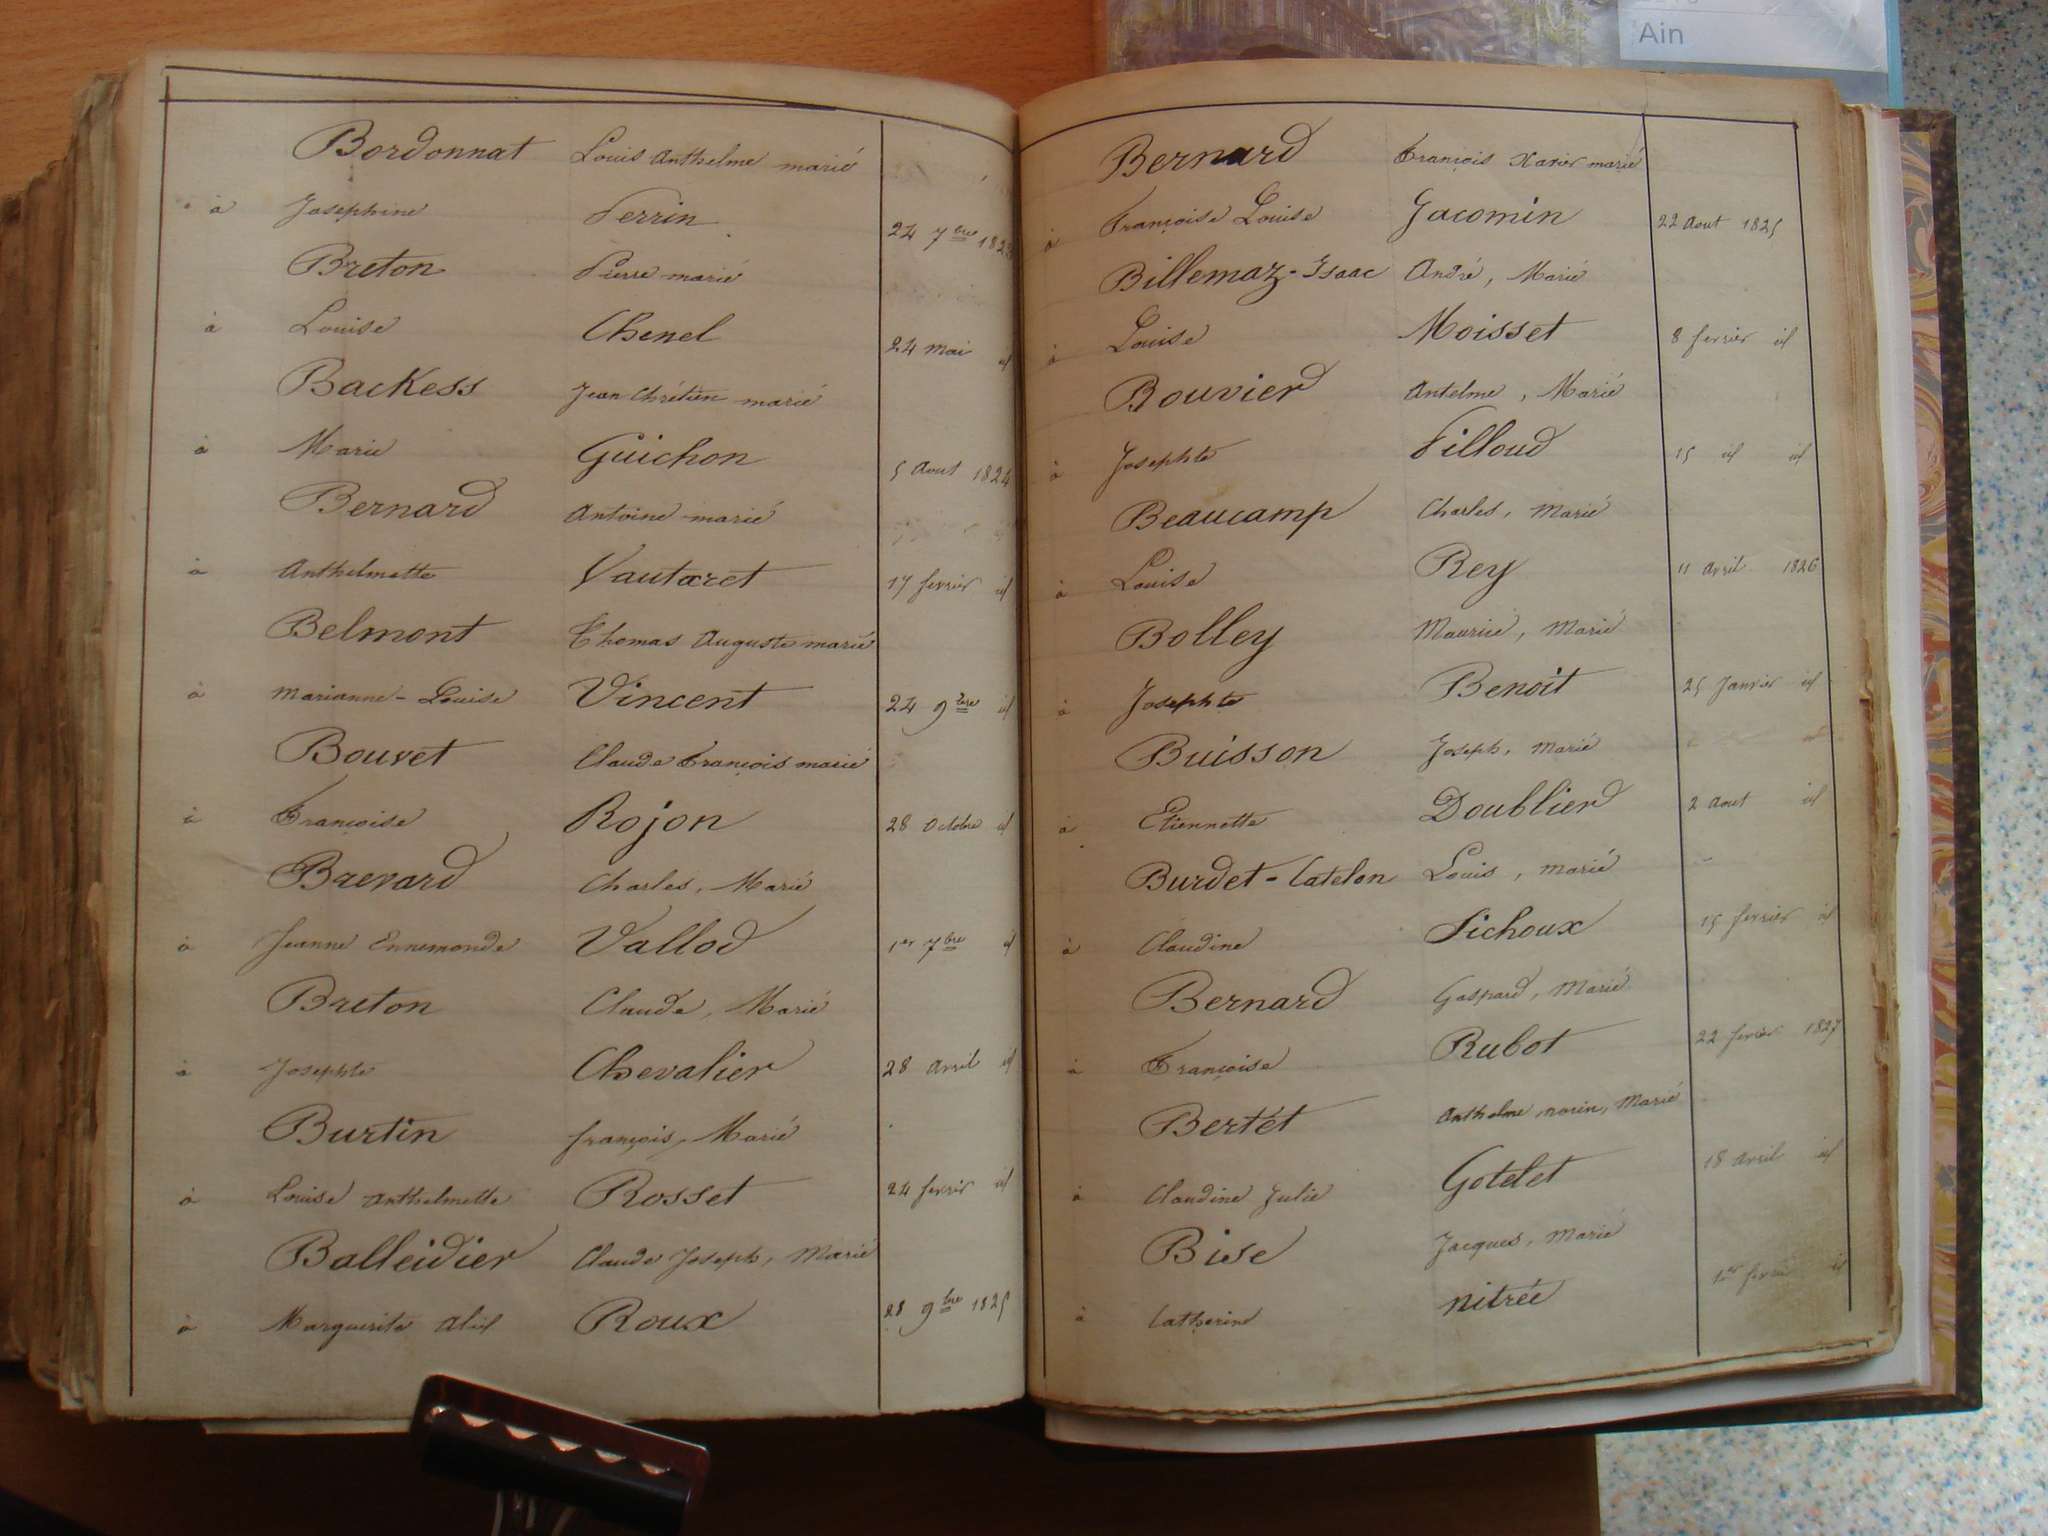 Ain
Bordonnat Louis Anthelme marié
à Josephine Perrin 24 7bre
Breton Pierre marié
à Louise Chenel 24 mai id
Backess Jean Chrétien marié
à Marie Guichon 5 Aout 1824
Bernard Antoine marié
à Anthelmette Vautaret 17 fevrier id
Belmont Thomas Auguste marié
à Marianne-Louise Vincent 24 9bre id
Bouvet Claude François marié
à Françoise Rojon 28 Octobre id
Baevard Charles, Marié
à Jeanne Ennemonde Vallod 1er 7bre id
Breton Claude, Marié
à Josephte Chevalier 28 Avril id
Burtin françois, Marié
à Louise Anthelmette Rosset 24 fevrier id
Balleidier Claude Joseph, Marié
à Marguerite Roux 28 9bre 1825
Bernard François Xavier marié
à Françoise Louise Jacomin 22 Aout 1825
Billemaz-Isaac André, Marié
à Louise Moisset 8 fevrier id
Bouvier Antelme, Marié
à Josephte Filloud 15 id id
Beaucamp Charles, Marié
à Louise Rey 11 Avril 1826
Bolley Maurice, Marié
à Josephte Benoit 25 Janvier id
Buisson Joseph, Marié
à Etiennette Doublier 2 Aout id
Burdet-Catelon Louis, Marié
à Claudine Pichoux 15 fevrier id
Bernard Gaspard, Marié
à Françoise Rubot 22 fevrier 1827
Bertét Anthelme, marin, Marié
à Claudine Julie Gotelet 18 Avril id
Bise Jacques, Marié
à Catherine nitrée 1er fevrier id